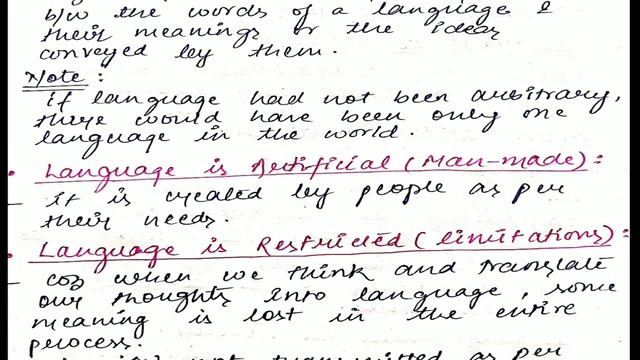 b/w the words of a language &
their meanings or the ideas
conveyed by them.
Note:
if language had not been arbitrary,
there would have been only one
language in the world.
• Language is Artificial (Man-made):
– it is created by people as per
their needs.
• Language is Restricted (limitations):
– coz when we think and translate
our thoughts into language, some
meaning is lost in the entire
process.
not transmitted as per